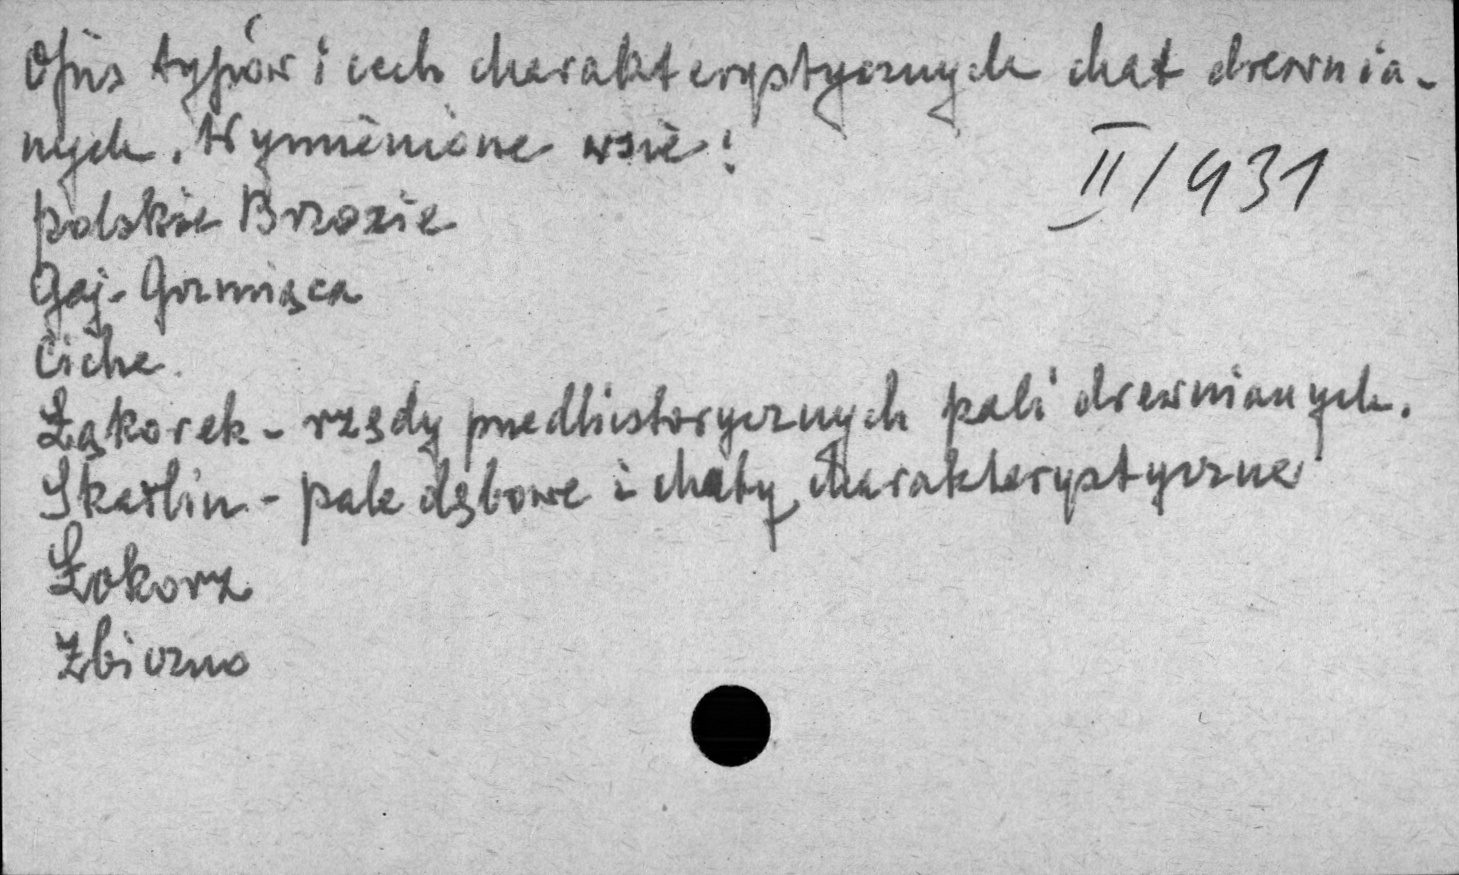 Opis typów i cech charakterystycznych chat drewnia-
nych. Wymienione wsie:
II/931
polskie Brzozie
Gaj-Grzmiąca
Ciche.
Łąkorek - rzędy przedhistorycznych pali drewnianych.
Skarlin - pale dębowe i chaty charakterystyczne
Łokorz
Zbiczno